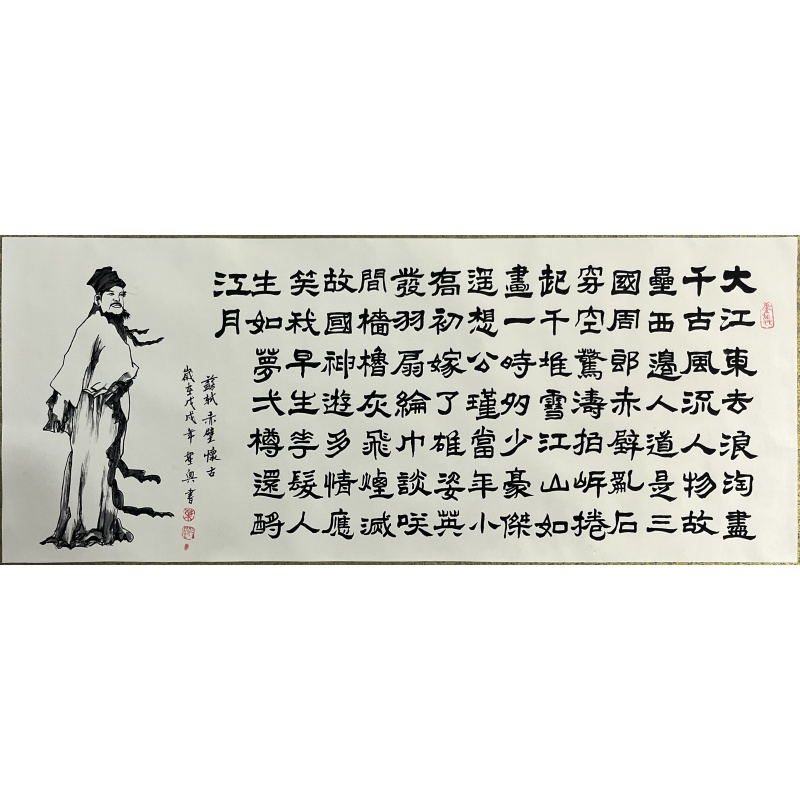 大江東去浪淘盡
千古風流人物故
壘西邊人道是三
國周郎赤壁亂石
穿空驚濤拍岸捲
起千堆雪江山如
畫一時多少豪傑
遥想公瑾當年小
喬初嫁了雄姿英
發羽扇綸巾談咲
間檣櫓灰飛煙滅
故國神遊多情應
笑我早生華髮人
生如夢弌樽還酹
江月
蘇軾赤壁懷古
歲在戊戌年書